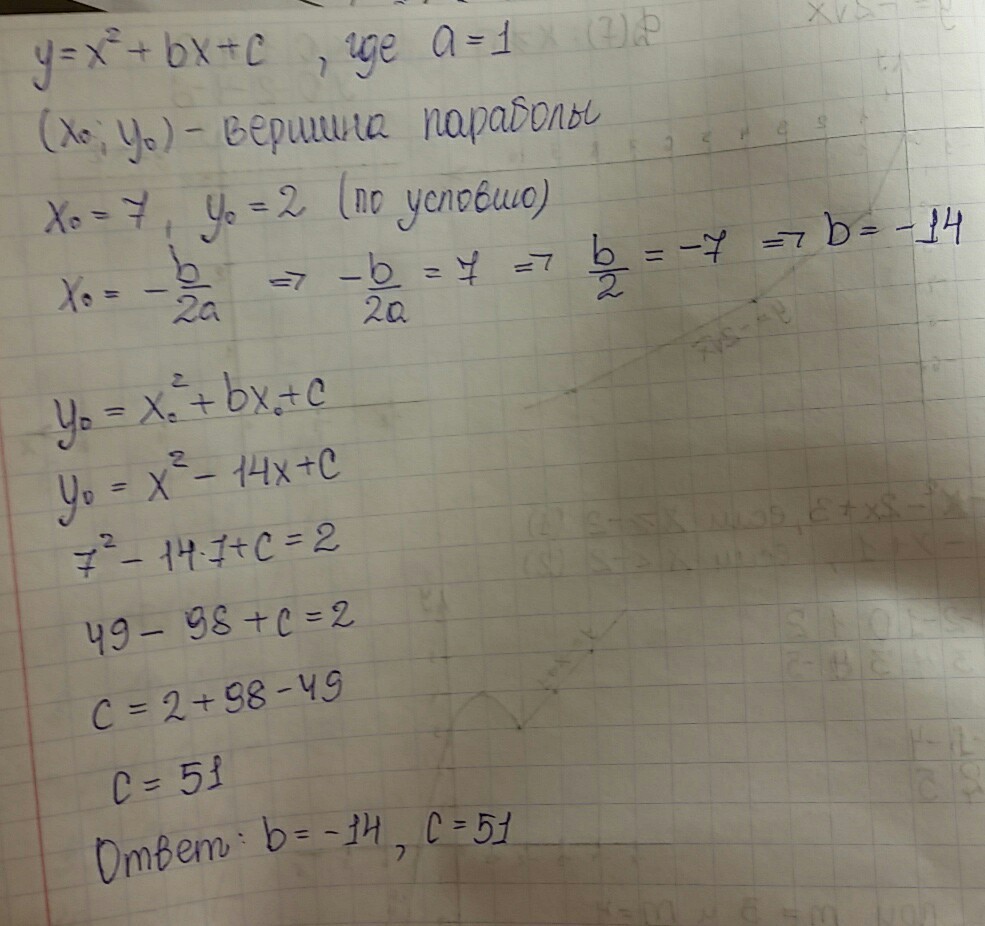 y = x² + bx + c , где a = 1
(x₀; y₀) – вершина параболы
x₀ = 7, y₀ = 2 (по условию)
x₀ = -b/2a => -b/2a = 7 => b/2 = -7 => b = -14
y₀ = x₀² + bx₀ + c
y₀ = x² - 14x + c
7² - 14·7 + c = 2
49 - 98 + c = 2
c = 2 + 98 - 49
c = 51
Ответ: b = -14, c = 51